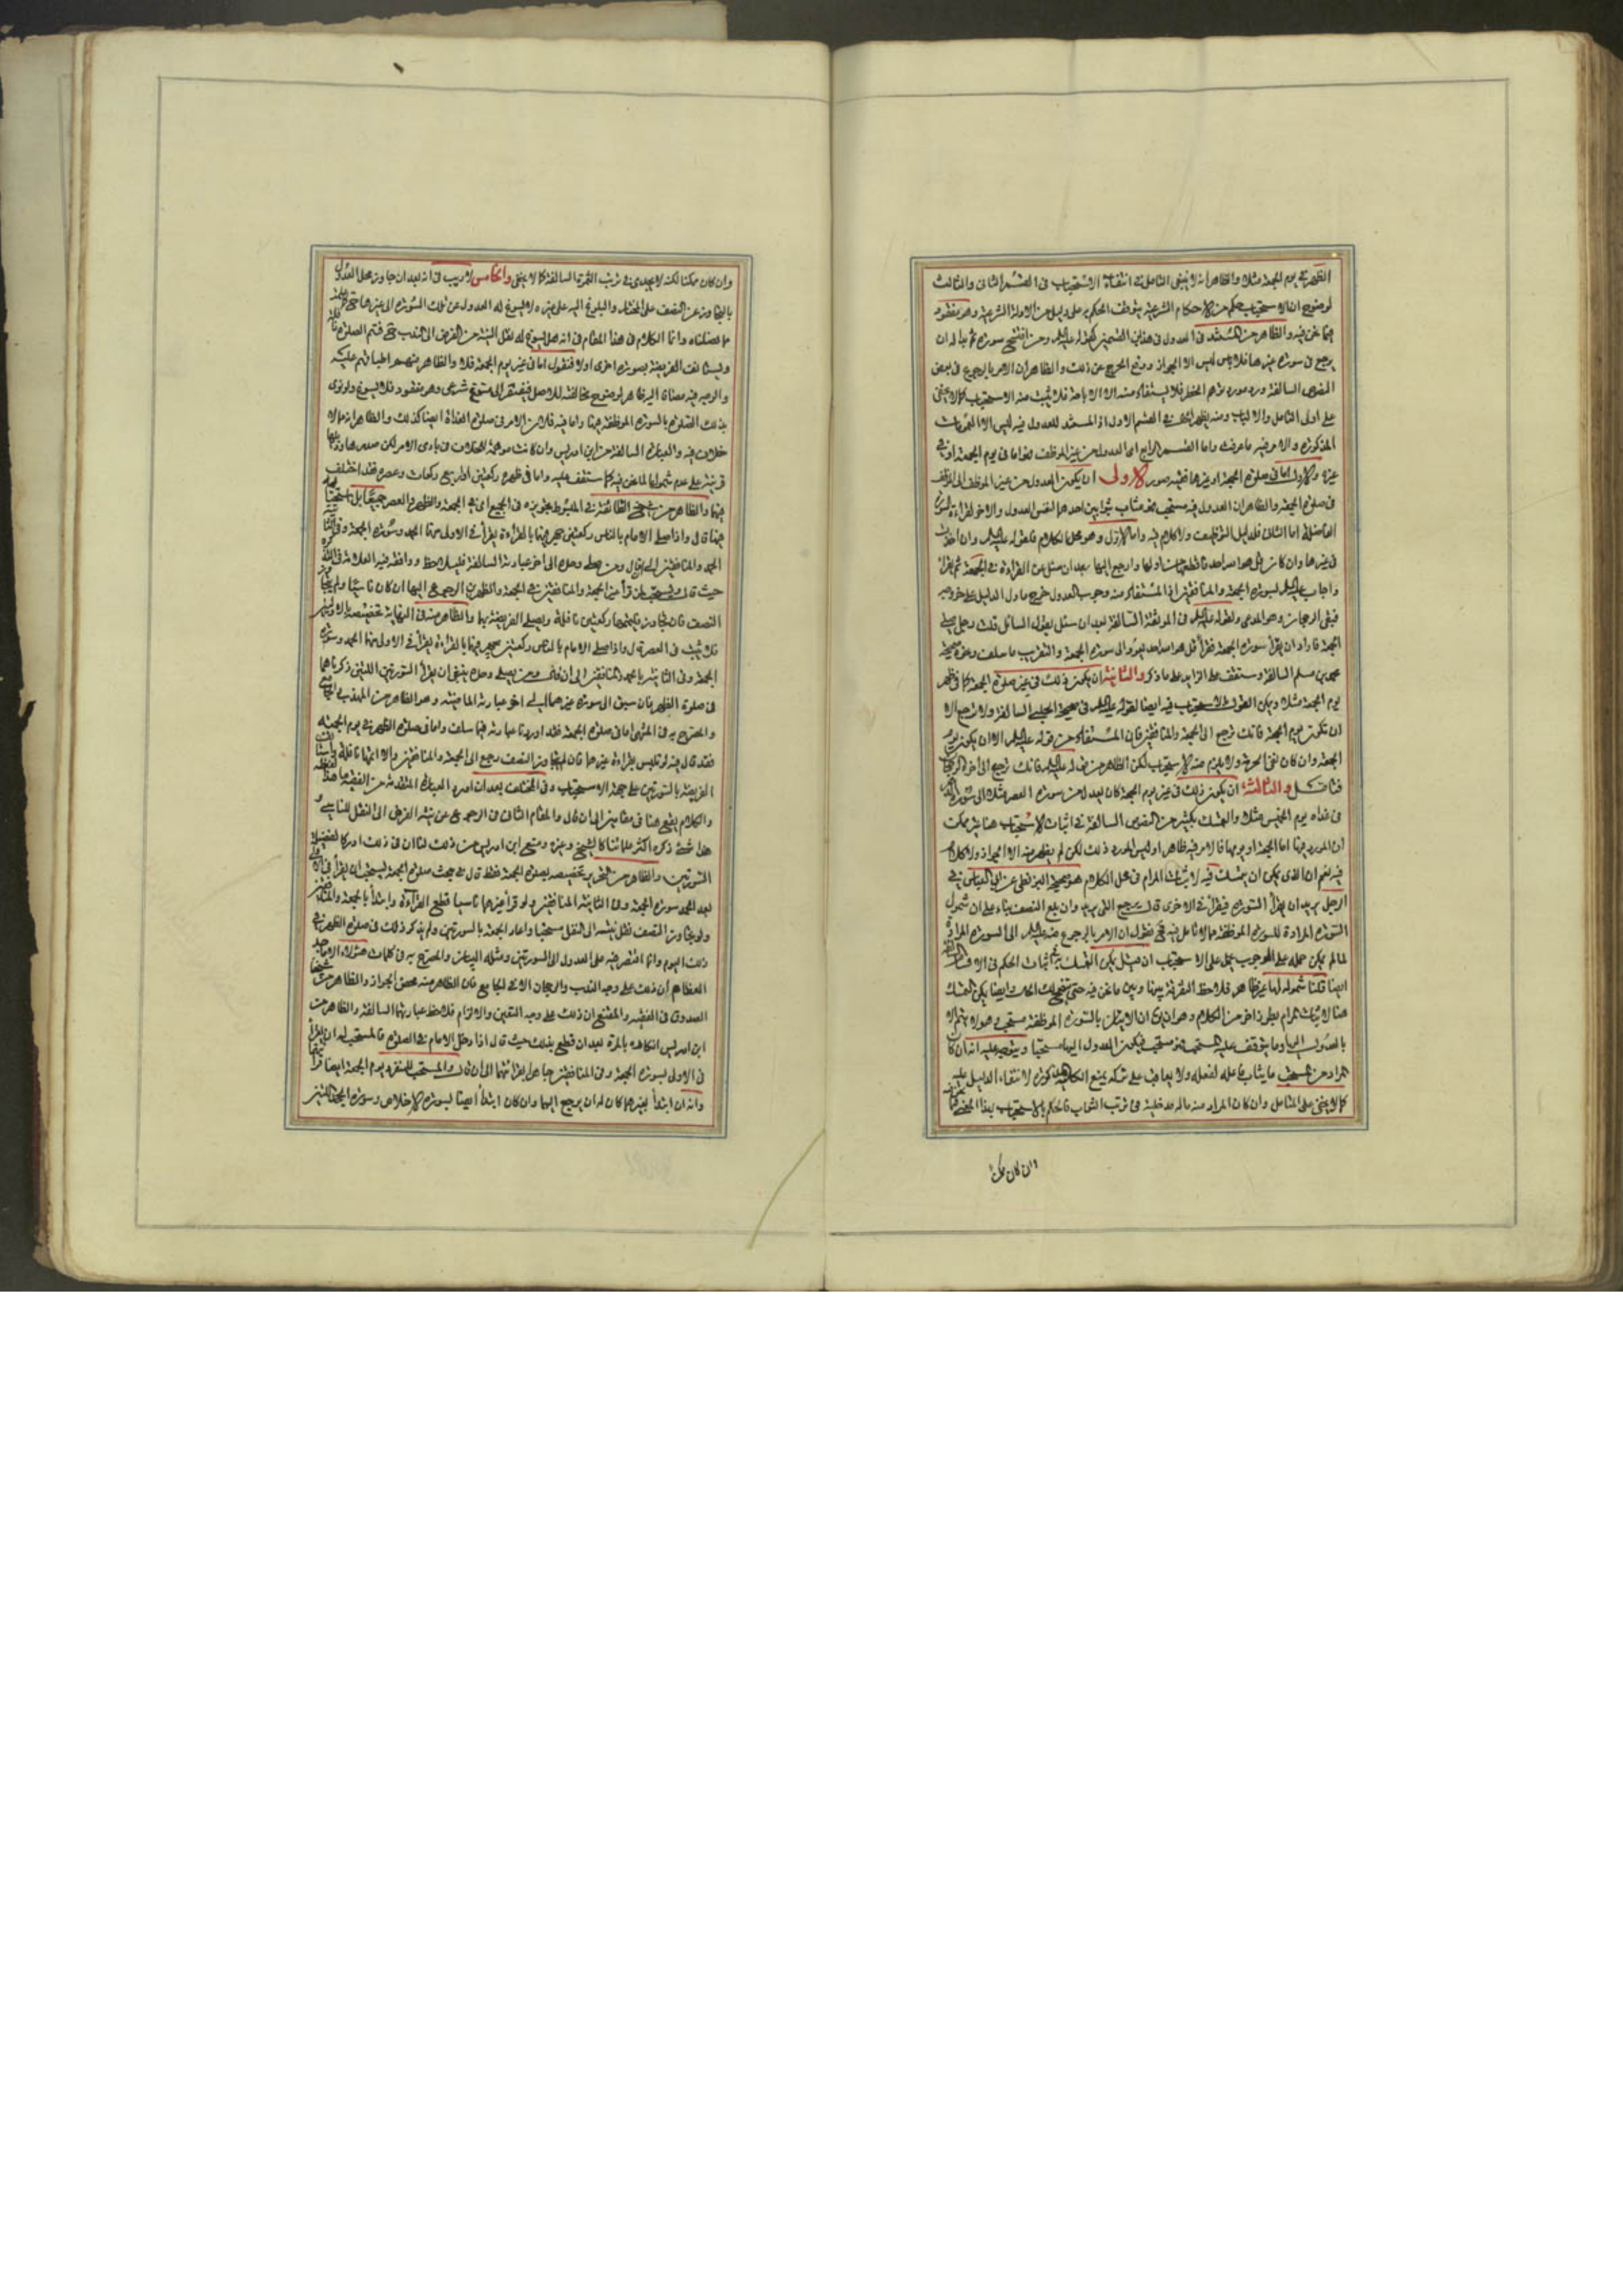 الظهر في يوم الجمعة مثلا والظاهر انه لا ينبغي التامل في انتفاء الاستحباب في القسم الثاني والثالث
لوضوح ان الاستحباب حكم من الاحكام الشرعية يتوقف الحكم به على دليل من الادلة الشرعية وهو مفقود
فيما نحن فيه والظاهر من المستند في العدول في هذين القسمين كقوله عليه السلم ومن افتتح سورة ثم بدا له ان
يرجع في سورة غيرها فلا باس ليس الا الجواز ورفع الحرج عن ذلك والظاهر ان الامر بالرجوع في بعض
النصوص السالفة ورد مورد توهم الحظر فلا يستفاد منه الا الاباحة فلا يثبت منه الاستحباب كما لا يخفى
على اولى التامل والالباب ومنه يظهر الحال في القسم الاول اذ المستند للعدول فيه ليس الا العمومات
المذكورة والامر فيه ما عرفت واما القسم الرابع اى العدول من غير الموظف فهو اما في يوم الجمعة او في
غيره والاول اما في صلوة الجمعة او غيرها فهنا صور الاولى ان يكون العدول من غير الموظف الى الموظف
في صلوة الجمعة والظاهر ان العدول فيه مستحب فهو مثاب بثوابين احدهما لنفس العدول والاخر لقراءة السورة
الفاضلة اما الثاني فلدليل التوظيف ولا كلام فيه واما الاول وهو محل الكلام فلقوله عليه السلم وان اخذت
في غيرها وان كان قل هو الله احد فاقطعها من اولها وارجع اليها بعد ان سئل عن القراءة في الجمعة ثم يقرأ
واجاب عليه السلم بسورة الجمعة والمنافقين اذ المستفاد منه وجوب العدول خرج ما دل الدليل على خروجه
فبقى الرجحان وهو المدعى ولقوله عليه السلم في الموثقة السالفة بعد ان سئل بقول السائل قلت رجل صلى
الجمعة فاراد ان يقرأ سورة الجمعة فقرأ قل هو الله احد يعود الى سورة الجمعة والتقريب ما سلف ونحوه صحيحة
محمد بن مسلم السالفة وستقف على الزايد على ما ذكر والثانية ان يكون ذلك في غير صلوة الجمعة كما في ظهر
يوم الجمعة مثلا ويمكن القول بالاستحباب فيه ايضا لقوله عليه السلم في صحيحة الحلبي السالفة ولا ترجع الا
ان تكون يوم الجمعة فانك ترجع الى الجمعة والمنافقين فان المستفاد من قوله عليه السلم الا ان يكون يوم
الجمعة وان كان نفي الحرمة ولا يلزم منه الاستحباب لكن الظاهر من قوله عليه السلم فانك ترجع الى اخره الرجحان
فتامل والثالثة ان يكون ذلك في غير يوم الجمعة كان يعدل من سورة العصر مثلا الى سورة
في غداة يوم الخميس مثلا والتمسك بكثير من النصوص السالفة في اثبات الاستحباب هنا غير ممكن
ان المورد فيها اما الجمعة او يومها فالامر فيه ظاهر او ليس المورد ذلك لكن لم يظهر منه الا الجواز ولا كلام
فيه نعم ان الذى يمكن ان يتمسك فيه لاثبات المرام في محل الكلام هو صحيحة البزنطى عن ابي العباس في
الرجل يريد ان يقرأ السورة فيقرأ في الاخرى قال يرجع التي يريد وان بلغ النصف بناء على ان شمول
السورة المرادة للسورة الموظفة مما لا تامل فيه فح نقول ان الامر بالرجوع منه عليه السلم الى السورة المرادة
لما لم يكن حمله على الوجوب يحمل على الاستحباب ان قيل يمكن التمسك به لاثبات الحكم في الاقسام
ايضا قلنا شموله لها غير ظاهر فلاحظ الفرق بينها وبين ما نحن فيه حتى يتضح لك الحال وايضا يمكن التمسك
هنا لاثبات المرام بطريق اخر من الكلام وهو ان يقال ان الاتيان بالسورة الموظفة مستحب وهو لا يتم الا
بالعدول اليها وما يتوقف عليه المستحب فهو مستحب فيكون العدول اليها مستحبا ويتوجه عليه انه ان كان
المراد من المستحب ما يثاب فاعله لفعله ولا يعاقب على تركه يمنع الكلية المذكورة لانتفاء الدليل عليه
كما لا يخفى على المتامل وان كان المراد منه ماله مدخلية في ترتب الثواب فالحكم بالاستحباب بهذا المعنى
وان كان ممكنا
وان كان ممكنا لكنه لا يجدى في ترتب الثمرة السالفة كما لا يخفى والخامس لا ريب في انه بعد ان جاوز محل العدول
بالتجاوز عن النصف على المختار والبلوغ اليه على غيره لا يسوغ له العدول عن تلك السورة الى غيرها حتى
ما فصلناه وانما الكلام في هذا المقام في انه هل يسوغ له نقل النية من الفرض الى الندب حتى فيتم الصلوة
ويستانف الفريضة بسورة اخرى او لا فنقول اما في غير يوم الجمعة فلا والظاهر منهم اطباقهم عليه
والوجه فيه مضافا اليه ظاهر لوضوح مخالفته للاصل فيفتقر الى مسوغ شرعى وهو مفقود فلا يسوغ ولو نوى
بذلك الصلوة بالسورة الموظفة فيها واما فيه فلان الامر في صلوة الغداة ايضا كذلك والظاهر انه مما لا
خلاف فيه والعبارة السالفة من ابن ادريس وان كانت موهمة للخلاف في بادى الامر لكن صدرها وذيلها
قرينة على عدم شمولها لما نحن فيه كما ستقف عليه واما في ظهره ركعتين او اربع ركعات وعصره فقد اختلف
فيها والظاهر من شيخ الطائفة في المبسوط تجويزه في الجميع اى في الجمعة والظهر والعصر جميعا بل استحبابه
فيها قال واذا صلى الامام بالناس ركعتين جهر فيهما بالقراءة يقرأ في الاولى منهما الحمد وسورة الجمعة وفي الثانية
الحمد والمنافقين الى ان قال ومن صلى وحده الى اخر عبارته السالفة فليلاحظ ووافقه فيه العلامة في
حيث قال ويستحب لمن قرأ من الجمعة والمنافقين في الجمعة والظهرين الرجوع اليها ان كان ناسيا ولم يتجاوز
النصف فان تجاوز تممها ركعتين نافلة ويصلى الفريضة بها والظاهر منه في النهاية تخصيصه بالاولين
فلا يثبت في العصر قال واذا صلى الامام بالناس ركعتين جهر فيهما بالقراءة يقرأ في الاولى منهما الحمد وسورة
الجمعة وفي الثانية بالحمد والمنافقين الى ان قال ومن يصلى وحده ينبغي ان يقرأ السورتين اللتين ذكرناهما
في صلوة الظهر فان سبق الى سورة غيرهما الى اخر عبارته الماضية وهو الظاهر من المهذب
والمصرح به في المنتهى اما في صلوة الجمعة فقد اوردنا عبارته فيما سلف واما في صلوة الظهر في يوم الجمعة
فقد قال فيه لو تلبس بقراءة غيرهما فان لم يتجاوز النصف رجع الى الجمعة والمنافقين والا اتمها نافلة واستانف
الفريضة بالسورتين على جهة الاستحباب وفي المختلف بعد ان اورد العبارة المتقدمة من الفقيه ما هذا لفظه
والكلام يقع هنا في مقامين الى ان قال والمقام الثاني في الرجوع عن نية الفرض الى النفل للناسى و
هذا شئ ذكره اكثر علمائنا كالشيخ وغيره ومنع ابن ادريس من ذلك لنا ان في ذلك ادراكا لفضيلة
السورتين والظاهر من التحرير تخصيصه بصلوة الجمعة فقط قال في بحث صلوة الجمعة يستحب ان يقرأ في الاولى
بعد الحمد سورة الجمعة وفي الثانية المنافقين ولو قرأ غيرهما ناسيا قطع القراءة وابتدأ بالجمعة والمنافقين
ولو تجاوز النصف نقل نيته الى النفل مستحبا واعاد الجمعة بالسورتين ولم يذكر ذلك في صلوة الظهر في
ذلك اليوم وانما اقتصر فيه على العدول الى السورتين ومثله البيان والمصرح به في كلمات هؤلاء الاماجد
العظام ان ذلك على وجه الندب والرجحان الا في الجامع فان الظاهر منه محض الجواز والظاهر من شيخنا
الصدوق في الفقيه والمقنع ان ذلك على وجه التعين والالزام فلاحظ عبارتهما السالفة والظاهر من
ابن ادريس انكاره بالمرة بعد ان قطع بذلك حيث قال اذا دخل الامام في الصلوة فالمستحب له ان يقرأ
في الاولى بسورة الجمعة وفي الثانية المنافقين يجهر بقرائتهما الى ان قال والمستحب للمنفرد يوم الجمعة ايضا قراءتهما
وانه ان ابتدأ بغيرهما كان له ان يرجع اليهما وان كان ابتدأ ايضا بسورة الاخلاص وسورة الجحد اللتين